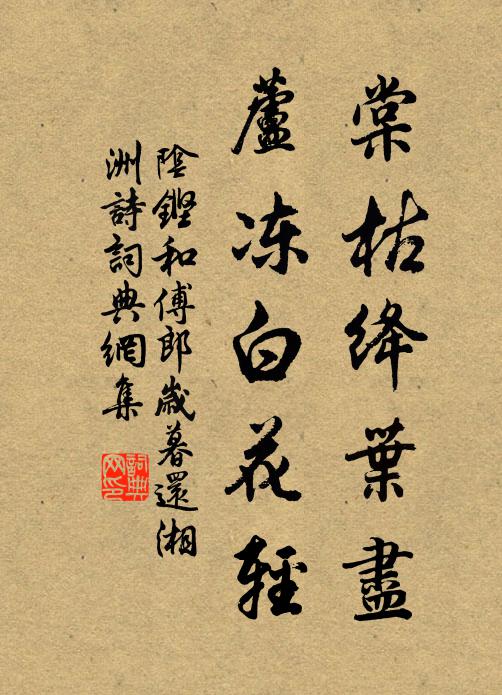 棠枯绛葉盡
蘆冻白花輕
陰鏗和傅郎歲暮還湘
洲詩詞典網集
詞典網印